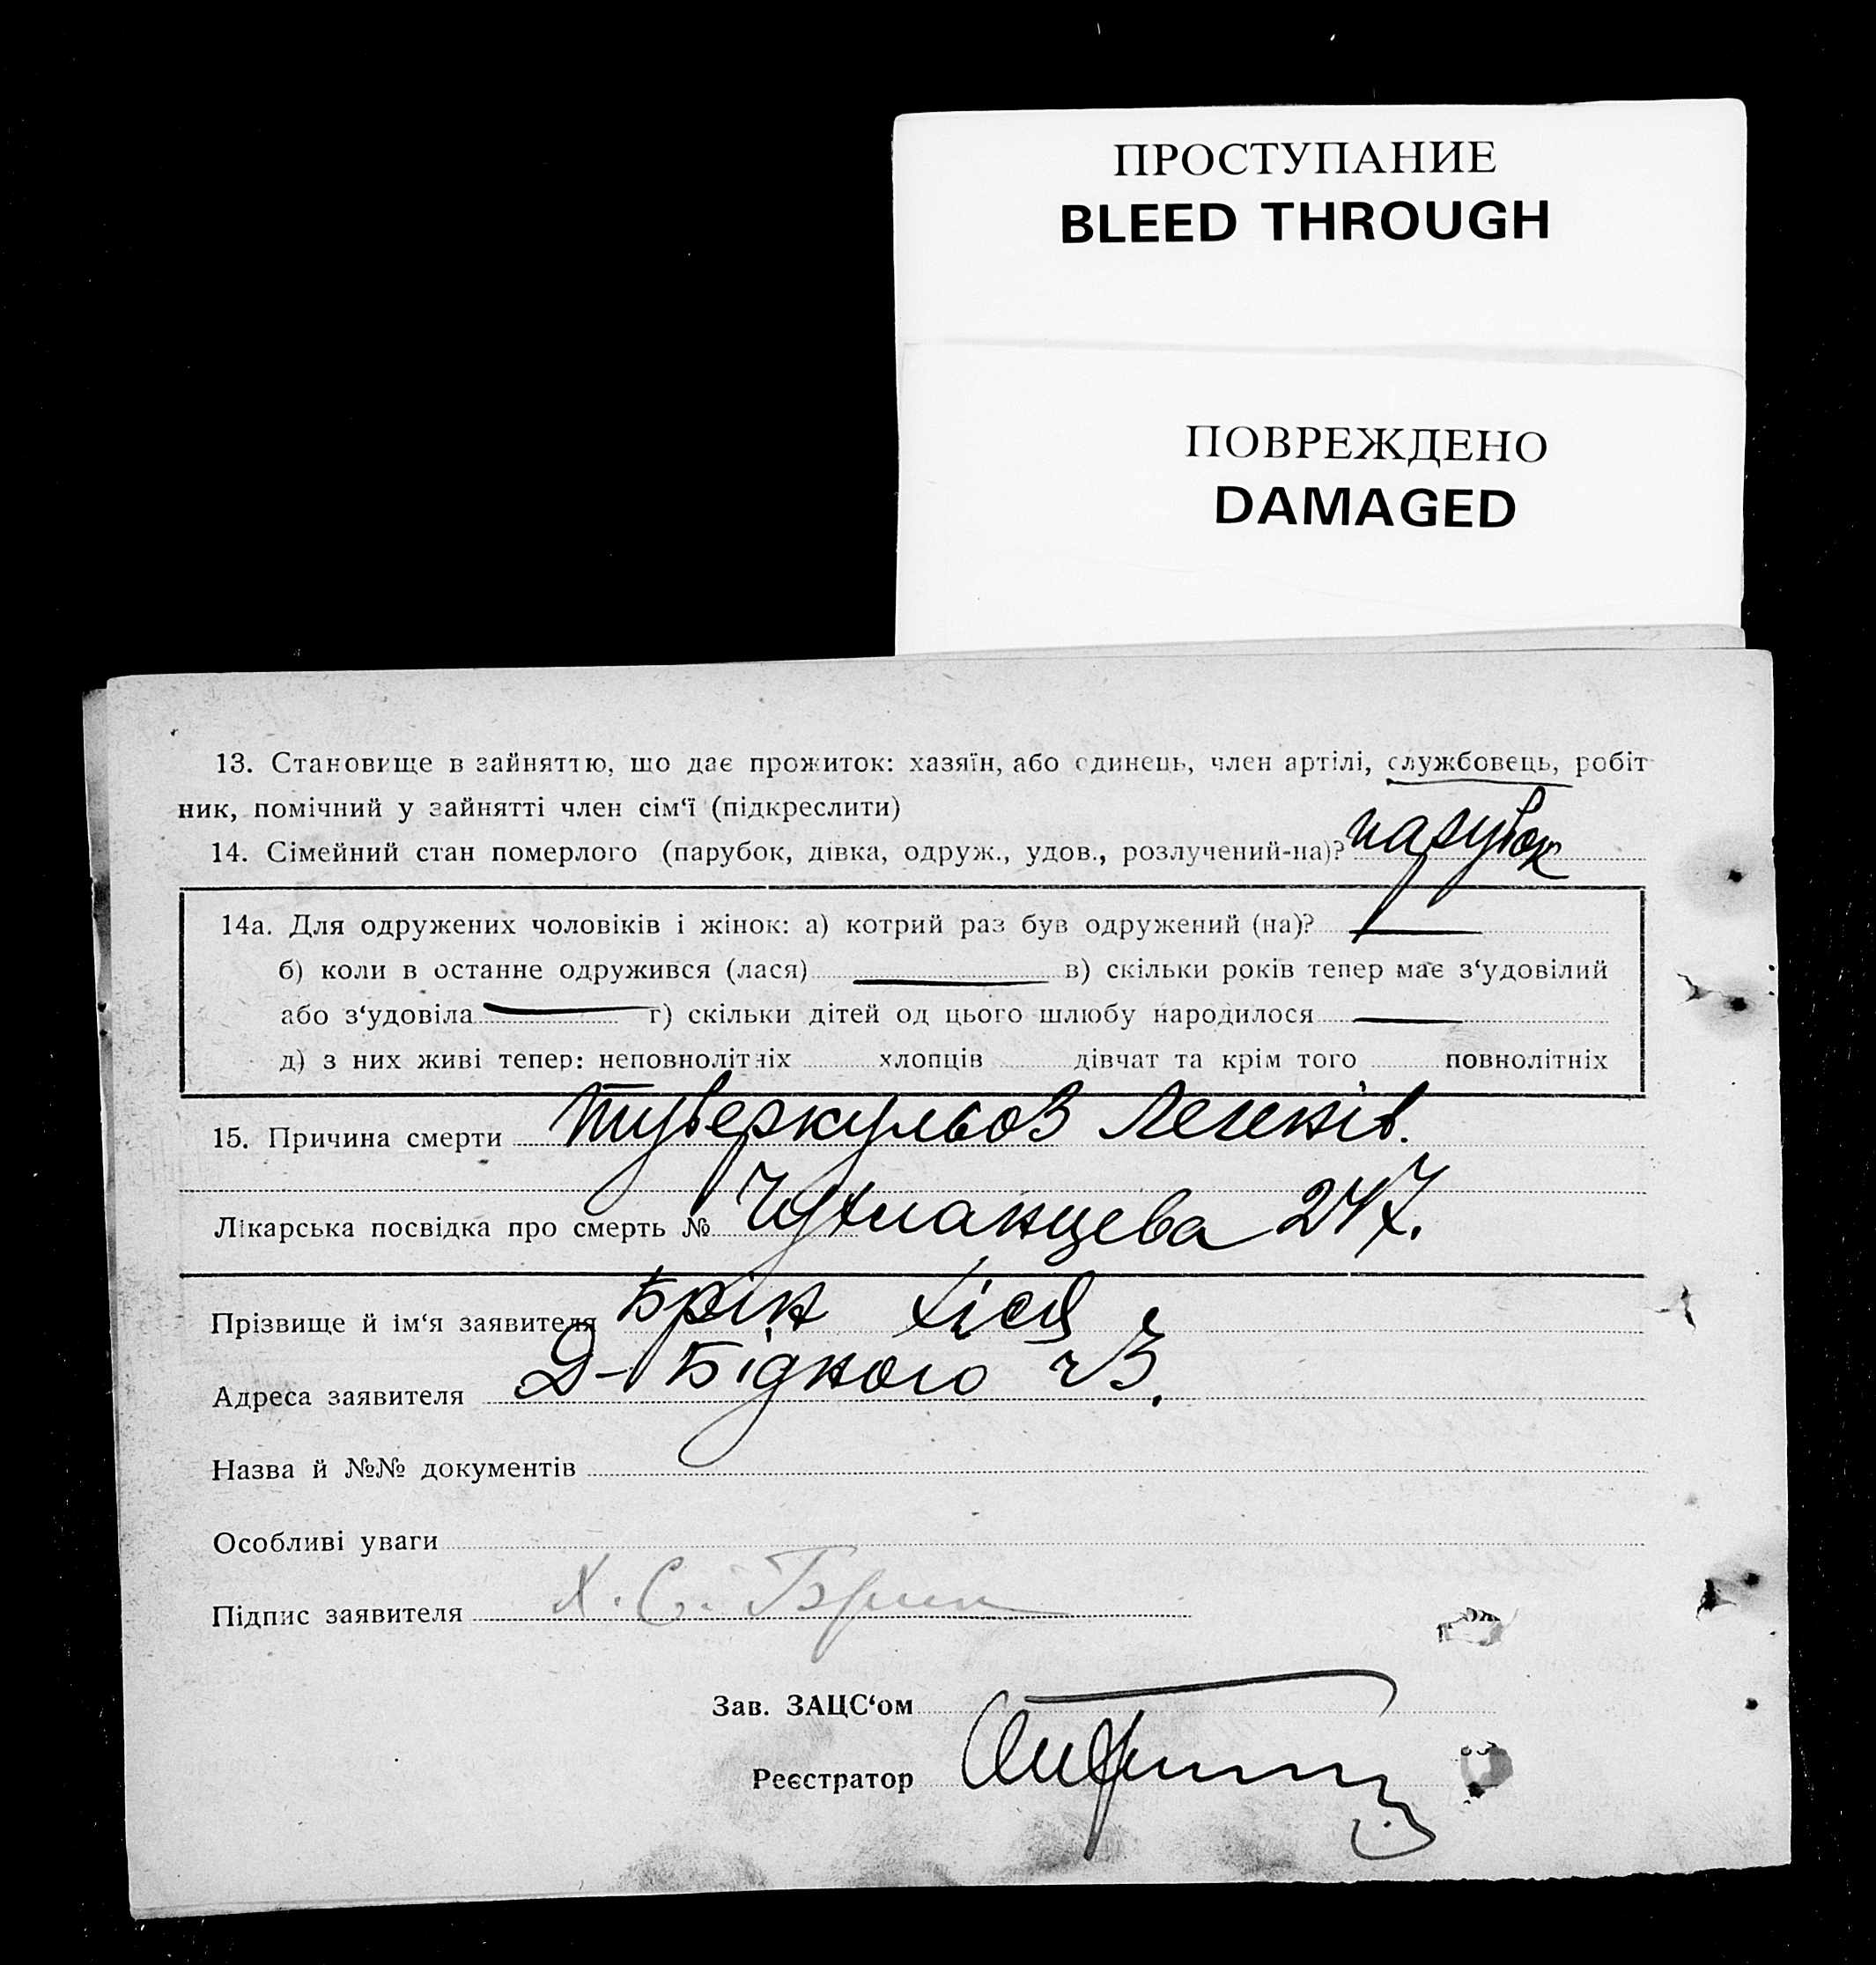 ПРОСТУПАНИЕ
BLEED THROUGH
ПОВРЕЖДЕНО
DAMAGED
13. Становище в зайняттю, що дає прожиток: хазяїн, або єдинець, член артілі, службовець, робіт-
ник, помічний у зайнятті член сім‘ї (підкреслити)
14. Сімейний стан померлого (парубок, дівка, одруж., удов., розлучений-на)? парубок
14а. Для одружених чоловіків і жінок: а) котрий раз був одружений (на)? —
б) коли в останнє одружився (лася) — в) скільки років тепер має з‘удовілий
або з‘удовіла — г) скільки дітей од цього шлюбу народилося —
д) з них живі тепер: неповнолітніх хлопців дівчат та крім того повнолітніх
15. Причина смерти туберкульоз легенів.
Лікарська посвідка про смерть № 247.
Прізвище й ім‘я заявителя Брік
Адреса заявителя Д-Бідного ч3.
Назва й №№ документів
Особливі уваги
Підпис заявителя Х. С. Брик
Зав. ЗАЦС‘ом
Реєстратор